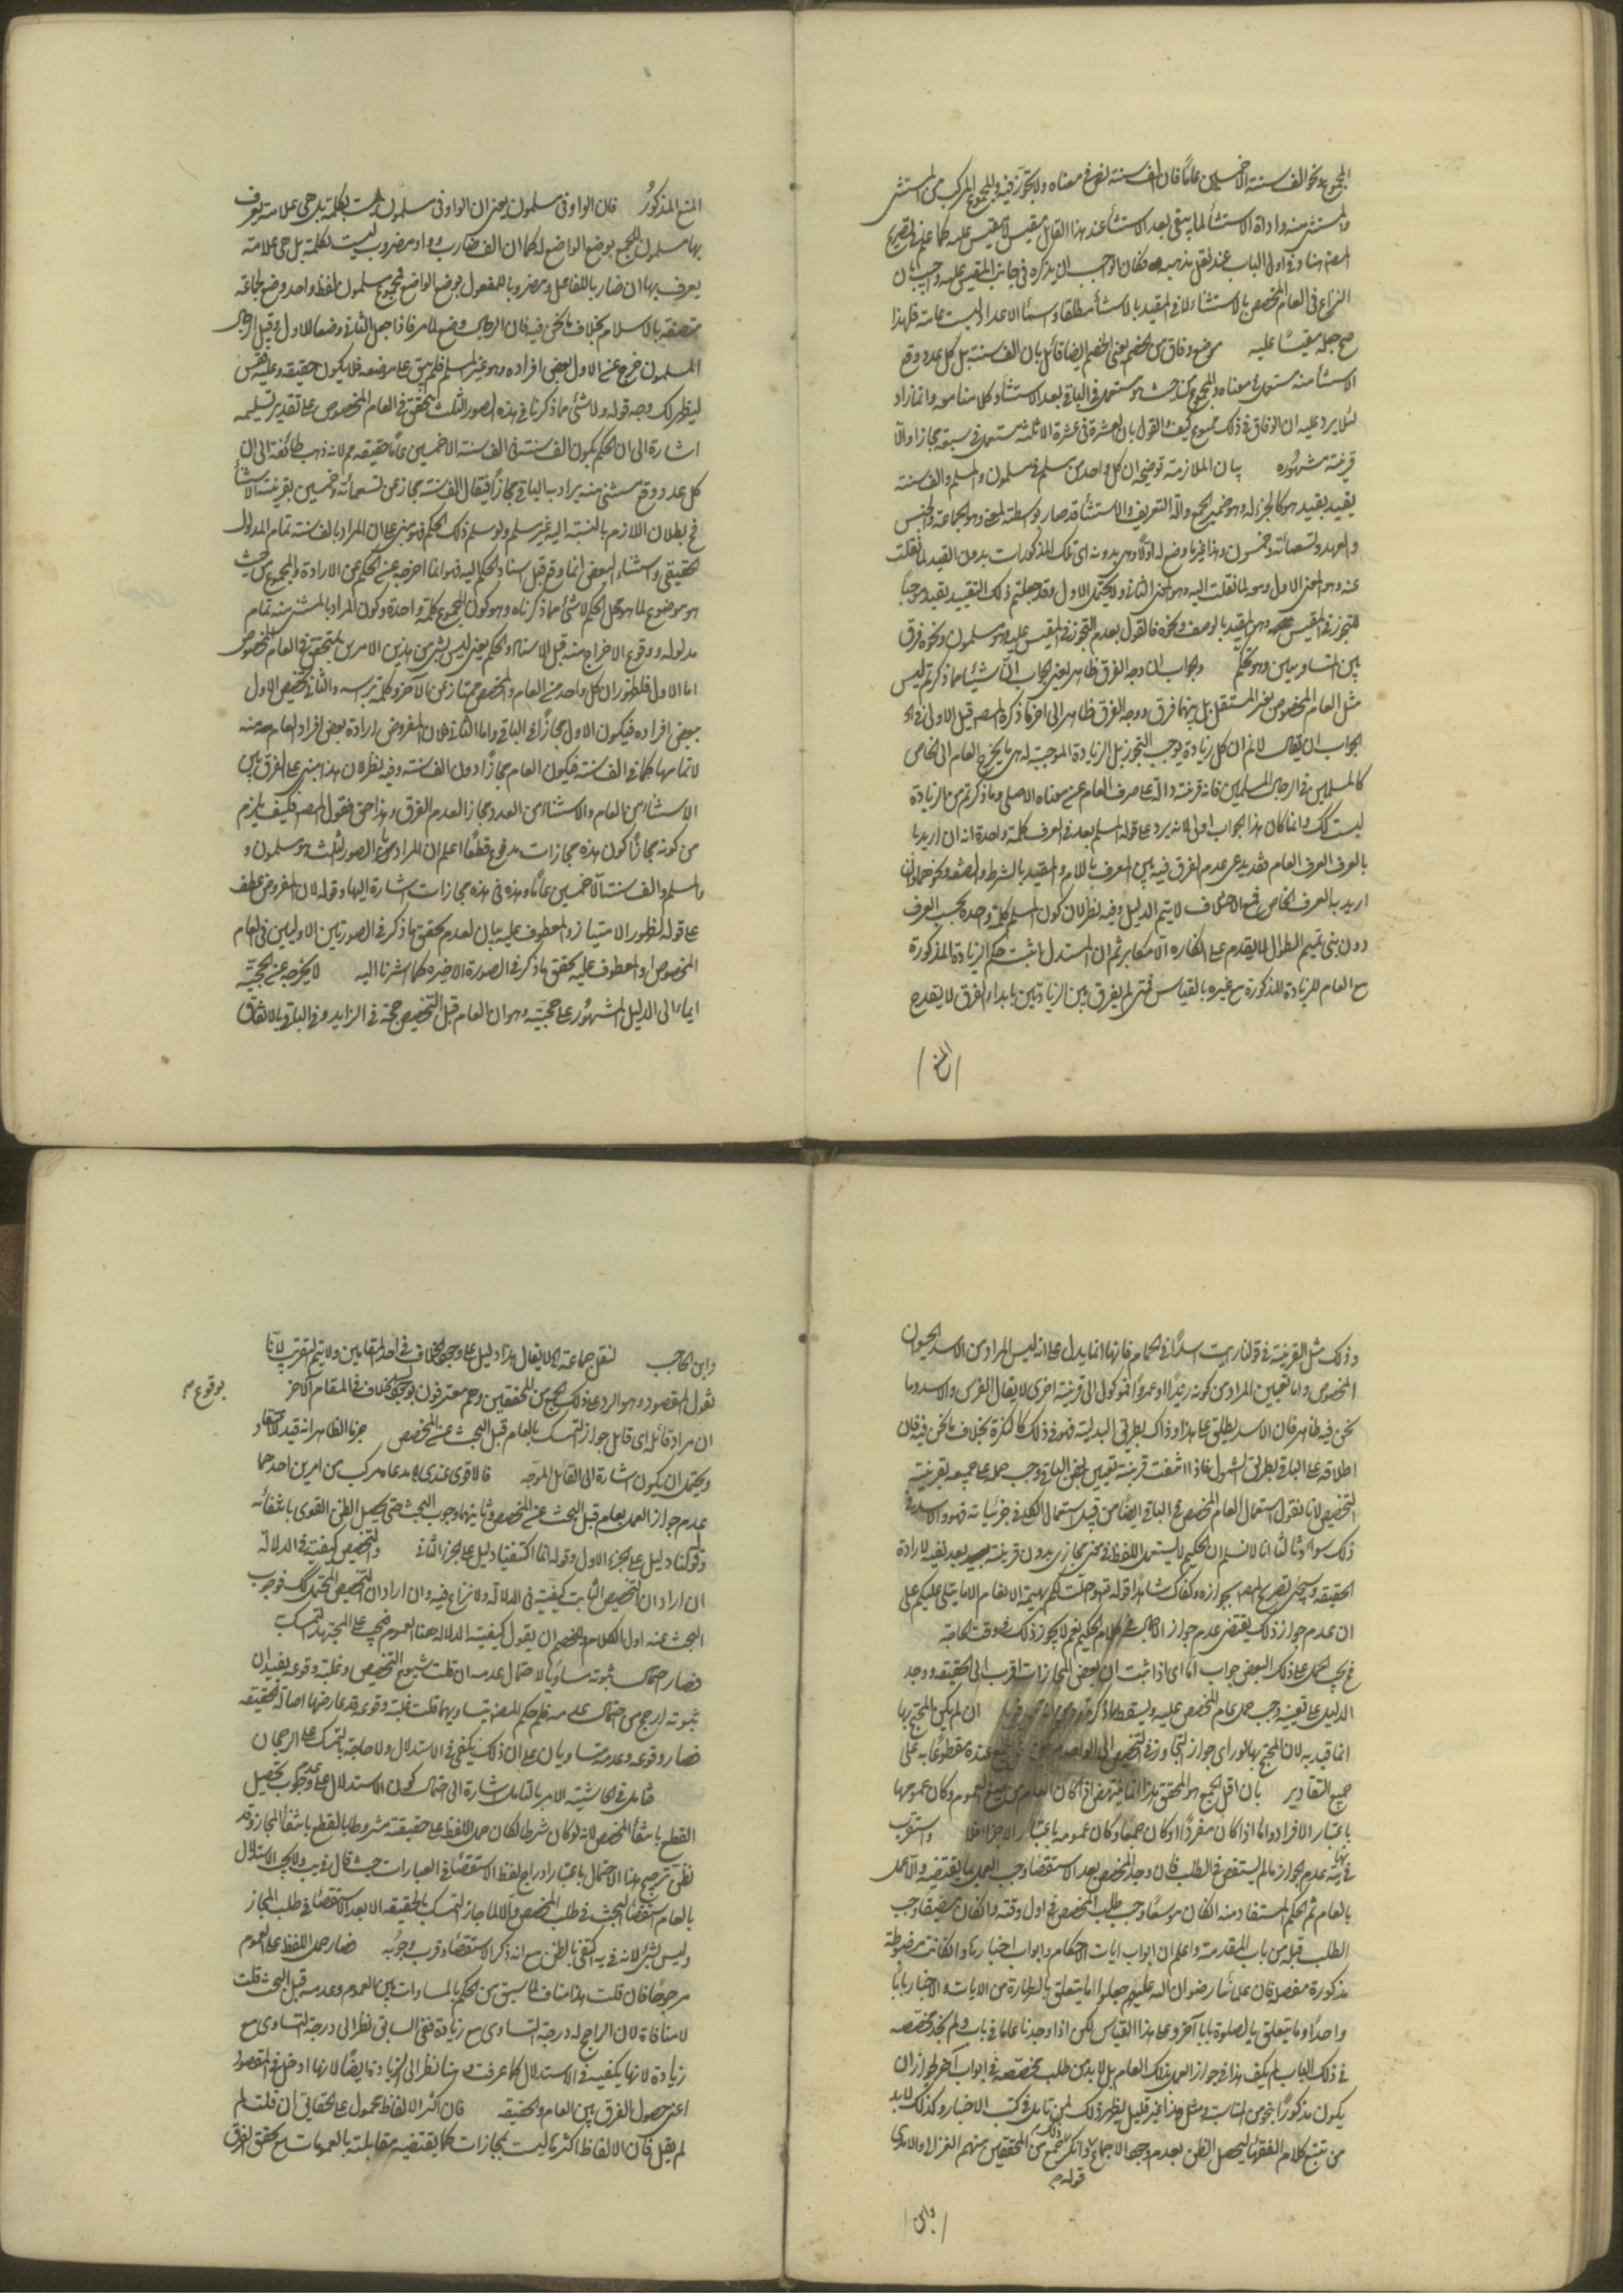 المجموع نحو الف سنة الا خمسين عاما فان الف سنة نص في معناه ولا تجوز فيه والمجموع المركب من المستثنى
والمستثنى منه واداة الاستثناء لما يبقى بعد الاستثناء عند هذا القائل مقيس لا مقيس عليه كما علم
في اول الباب عند نقل مذهبه فكان الواجب ان يذكره في جانب المقيس عليه
النزاع في العام المخصص بالاستثناء لا في المقيد بالاستثناء مطلقا واسماء الاعداد ليست عامة فلهذا
صح جعله مقيسا عليه موضع وفاق من الخصم يعني الخصم ايضا قائل بان الف سنة بل كل عدد وقع
الاستثناء منه مستعمل في معناه والمجموع من حيث هو مستعمل في الباقي بعد الاستثناء وكلامنا معه وانما زاد
لئلا يرد عليه ان الوفاق في ذلك ممنوع كيف والقول بان العشرة في عشرة الا ثلثة مستعمل في سبعة مجازا والا
قرينة مشهوره بيان الملازمة توضيحه ان كل واحد من مسلم في مسلمون والمسلم والف سنة
يقيد بقيد هو كالجزء له وهو ضمير الجمع والة التعريف والاستثناء قد صار بواسطته لمعنى وهو الجماعة والجنس
والعهد وتسعمائة وخمسون وهذا غير ما وضع له اولا وهي بدونه اي تلك المذكورات بدون القيد لما نقلت
عنه وهو المعنى الاول ومعه لما نقلت اليه وهو المعنى الثاني ولا يحتمل الاول وقد جعلتم ذلك التقييد بقيد موجبا
للتجوز في المقيس وهو المقيد بالوصف ونحوه فالقول بعدم التجوز في المقيس عليه وهو مسلمون ونحوه فرق
بين المتساويين وهو تحكم وجواب الثاني وجه الفرق ظاهر يعني الجواب ان شيئا مما ذكرتم ليس
مثل العام المخصوص بغير المستقل بل بينهما فرق ووجه الفرق ظاهر الى اخر ما ذكره المصنف قيل الاولى في
الجواب ان يقال لا نم ان كل زيادة يوجب التجوز بل الزيادة الموجبة له هي ما يخرج العام الى الخاص
كالمسلمين في الرجال المسلمين فانه قرينة دالة على صرف العام عن معناه الاصلي وما ذكرتم من الزيادة
ليست كك وانما كان هذا الجواب اولى لانه يرد على قوله المسلم يعد في العرف كلمة واحدة انه ان اريد
بالعرف العرف العام فقد يدعى عدم الفرق فيه بين المعرف باللام والمقيد بالشرط والصفة ونحوهما وان
اريد بالعرف الخاص فمع الاختلاف لا يتم الدليل وفيه نظر لان كون المسلم كلمة واحدة بحسب العرف
دون بني تميم الطوال لا يقدم على انكاره الا مكابر ثم ان المستدل ما ثبت حكم الزيادة المذكورة
مع العام للزيادة المذكورة مع غيره بالقياس حتى لم يفرق بين الزيادتين بابداء الفرق لا يقدح
المنع
المنع المذكور فان الواو في مسلمون يعني ان الواو في مسلمون ليست بكلمة بل هي علامة يعرف
بها مسلمون الجمع بوضع الواضع له كما ان الف ضارب وواو مضروب ليست بكلمة بل هي علامة
يعرف بها ان ضاربا للفاعل ومضروبا للمفعول بوضع الواضع فمجموع مسلمون لفظ واحد وضع لجماعة
متصفة بالاسلام بخلاف ما نحن فيه فان الرجال وضع لامر فاذا جعل الثاني وضعا للاول وقيل الرجال
المسلمون خرج عن الاول بعض افراده وهو غير المسلم فلم يبق على موضعه فلا يكون حقيقه وعليه فقس
ليظهر لك وجه قوله ولا شيء مما ذكرنا في هذه الصور الثلث بمتحقق في العام المخصوص على تقدير تسليمه
اشارة الى ان الحكم بكون الف سنة في الف سنة الا خمسين عاما حقيقه مم لانه ذهب طائفة الى ان
كل عدد وقع مستثنى منه يراد به الباقي مجازا فيقال الف سنة مجاز عن تسعمائة وخمسين بقرينة الاستثناء
فح بطلان اللازم بالنسبة اليه غير مسلم ولو سلم ذلك الحكم فهو مبنى على ان المراد بالف سنة تمام المدلول
الحقيقي واستثناء البعض انما وقع قبل اسناد الحكم اليه فهو انما اخرجه عن الحكم عن الارادة والمجموع من حيث
هو موضوع لما هو محل الحكم لا شيء مما ذكرناه وهو كون المجموع كلمة واحدة وكون المراد بالمستثنى منه تمام
مدلوله ووقوع الاخراج منه قبل الاسناد والحكم يعني ليس شيء من هذين الامرين بمتحقق في العام المخصوص
اما الاول فلظهور ان كل واحد من العام والمخصص ممتاز عن الآخر وكلمة برأسه والثاني تخصيص الاول
ببعض افراده فيكون الاول مجازا في الباقي واما الثاني فلان المفروض ارادة بعض افراد العام منه
لا تمامها كما في الف سنة فيكون العام مجازا دون الف سنة وفيه نظر لان هذا مبني على الفرق بين
الاستثناء من العام والاستثناء من العدد وبمجاز العدم الفرق وهذا حق فقول المصنف فكيف يلزم
من كونه مجازا كون هذه مجازات مدفوع قطعا اعلم ان المراد من الصور الثلث هو مسلمون و
المسلم والف سنة الا خمسين عاما وهذه في هذه مجازات اشارة اليها وقوله لان المفروض عطف
على قوله لظهور الامتياز والمعطوف عليه بيان لعدم تحقق ما ذكر في الصورتين الاوليين في العام
المخصوص والمعطوف عليه تحقق ما ذكر في الصورة الاخيره كما اشرنا اليه لا يخرجه عن الحجية
ايماء الى الدليل المشهور على حجيته وهو ان العام قبل التخصيص حجة في الزايد وفي الباقي بالاتفاق
وذلك مثل القرينة في قولنا رايت اسدا في الحمام فانها انما يدل على انه ليس المراد من الاسد الحيوان
المخصوص واما تعيين المراد من كونه زيدا او عمروا فموكول الى قرينة اخرى لا يقال الفرس والاسد وما
نحن فيه ظاهر فان الاسد يطلق على هذا وذاك بطريق البدلية فهو في ذلك كالنكرة بخلاف ما نحن فيه فان
اطلاقه على الباقي بطريق الشمول فاذا انتفت قرينة تعيين بعض الباقي وجب حمله على جميعه بقرينة
التخصيص لانا نقول استعمال العام المخصص في الباقي ايضا من قبيل استعمال الكلي في جزئياته فهو والاسد في
ذلك سواء وثالثا انا لا نسلم ان الحكيم لا يستعمل اللفظ في معنى مجازي بدون قرينة بعد نفيه لارادة
الحقيقه وسيجيء تصريح المصنف بجوازه وكفاك شاهدا قوله تعالى احلت لكم بهيمة الانعام الا ما يتلى عليكم على
ان عدم جواز ذلك يقتضي عدم جواز الاجمال في كلام الحكيم نعم لا يجوز ذلك في وقت الحاجة
فح يجب الحمل على ذلك البعض جواب اما اي اذا ثبت ان بعض المجازات اقرب الى الحقيقه ووجد
الدليل على تعيينه وجب حمل عام المخصص عليه ويسقط ما ذكرتموه ان لم يكن المحتج بها
انما قيد به لان المحتج بها لو راى جواز التجاوز في التخصيص الى الواحد عنده مقطوعا به على
جميع التقادير بان اقل الجمع هو المحقق هذا انما ينتهض اذا كان العام من صيغ العموم وكان عمومها
باعتبار الافراد واما اذا كان مفردا او كان جمعا وكان عمومه باعتبار الاجزاء فلا واستقرب
في يه عدم الجواز ما لم يستقص في الطلب فان وجد المخصص بعد الاستقصاء وجب العمل بما يقتضيه والا عمل
بالعام ثم الحكم المستفاد منه ان كان موسعا وجب طلب المخصص في اول وقته وان كان مضيقا وجب
الطلب قبله من باب المقدمة واعلم ان ابواب ايات الاحكام وابواب اخبارنا وان كانت مضبوطة
مذكورة مفصلة فان علماءنا رضوان الله عليهم جعلوا ما يتعلق بالطهارة من الايات والاخبار بابا
واحدا وما يتعلق بالصلوة بابا آخر وعلى هذا القياس لكن اذا وجدنا عاما في باب ولم نجد مخصصه
في ذلك الباب لم يكف هذا في جواز العمل بذلك العام بل لا بد من طلب مخصصه في ابواب آخر لجواز ان
يكون مذكورا بنحو من المناسبة ومثل هذا غير قليل يظهر ذلك لمن تامل في كتب الاخبار وكذلك لا بد
من تتبع كلام الفقهاء ليحصل الظن بعدم وجود الاجماع وانكر ذلك جمع من المحققين منهم الغزالي والآمدي
قوله م
وابن
وابن الحاجب لنقل جماعة الا لا يقال هذا دليل على وجود الخلاف في احد المقامين ولا يتم التقريب لانا
نقول المقصود وهو الرد على ذلك الجمع من المحققين وهم معترفون بوجود الخلاف في المقام الآخر
بوقوع م
ان مراد قائله اي قائل جواز التمسك بالعام قبل البحث عن المخصص جزما الظاهر انه قيد
ويحتمل ان يكون اشارة الى القائل الموجه فالاقوى عندي مدعاه مركب من امرين احدهما
عدم جواز العمل بعام قبل البحث عن المخصص وثانيهما وجوب البحث حتى يحصل الظن القوي بانتفائه
وقوله لنا دليل على الجزء الاول وقوله انما اكتفينا دليل على الجزء الثاني والتخصيص كيفية في الدلالة
ان اراد ان التخصيص الثابت كيفية في الدلالة ولا نزاع فيه وان اراد ان التخصيص المحتمل كك فوجوب
البحث عنه اول الكلام وللخصم ان يقول كيفية الدلاله هنا العموم فيجب على المجتهد التمسك
فصار احتمال ثبوته مساويا لاحتمال عدمه ان قلت شيوع التخصيص وغلبة وقوعه يفيد ان
ثبوته ارجح من احتمال عدمه فلم حكم المصنف بتساويهما قلت غلبة وقوعه قد عارضها اصالة الحقيقه
فصار وقوعه وعدمه متساويان على ان ذلك يكفي في الاستدلال ولا حاجة بالتمسك على الرجحان
فتامل في الحاشية الامر بالتامل اشارة الى احتمال كون الاستدلال على عدم وجوب تحصيل
القطع بانتفاء المخصص لانه لو كان شرطا لكان حمل اللفظ على حقيقته مشروطا بالقطع بانتفاء المجاز وقد
يظن ترجيح هذا الاحتمال باعتبار ادراج لفظ الاستقصاء في العبارات حيث قال في يب ولا يجب الاستدلال
بالعام استقصاء البحث في طلب المخصص والا لما جاز التمسك بالحقيقه الا بعد الاستقصاء في طلب المجاز
وليس بشيء لانه في يه اكتفى بالظن مع انه ذكر الاستقصاء وقرب وجوبه فصار حمل اللفظ على العموم
مرجوحا فان قلت هذا مناف لما سبق من الحكم بالمساوات بين العموم وعدمه قبل البحث قلت
لا منافاة لان الراجح له درجة التساوي مع زيادة ففي السابق نظر الى درجة التساوي مع
زيادة لانها يكفيه في الاستدلال كما عرفت وهنا نظر الى الزيادة ايضا لانها ادخل في المقصود
اعني حصول الفرق بين العام والحقيقه فان اكثر الالفاظ محمول على الحقايق ان قلت لم
لم يقل فان الالفاظ اكثرها ليست بمجازات كما يقتضيه مقابلته بالعمومات مع تحقق الفرق